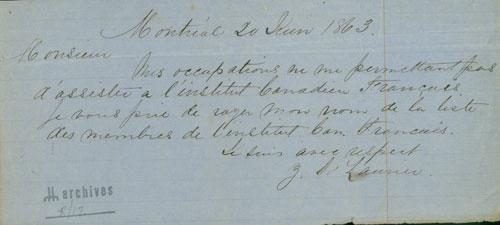 Montréal 20 Juin 1863.
Monsieur
Mes occupations ne me permettant pas
d'assister a l'institut Canadien Français
je vous prie de rayer mon nom de la liste
des membres de l'institut Can. Francais.
Je suis avec respect
archives